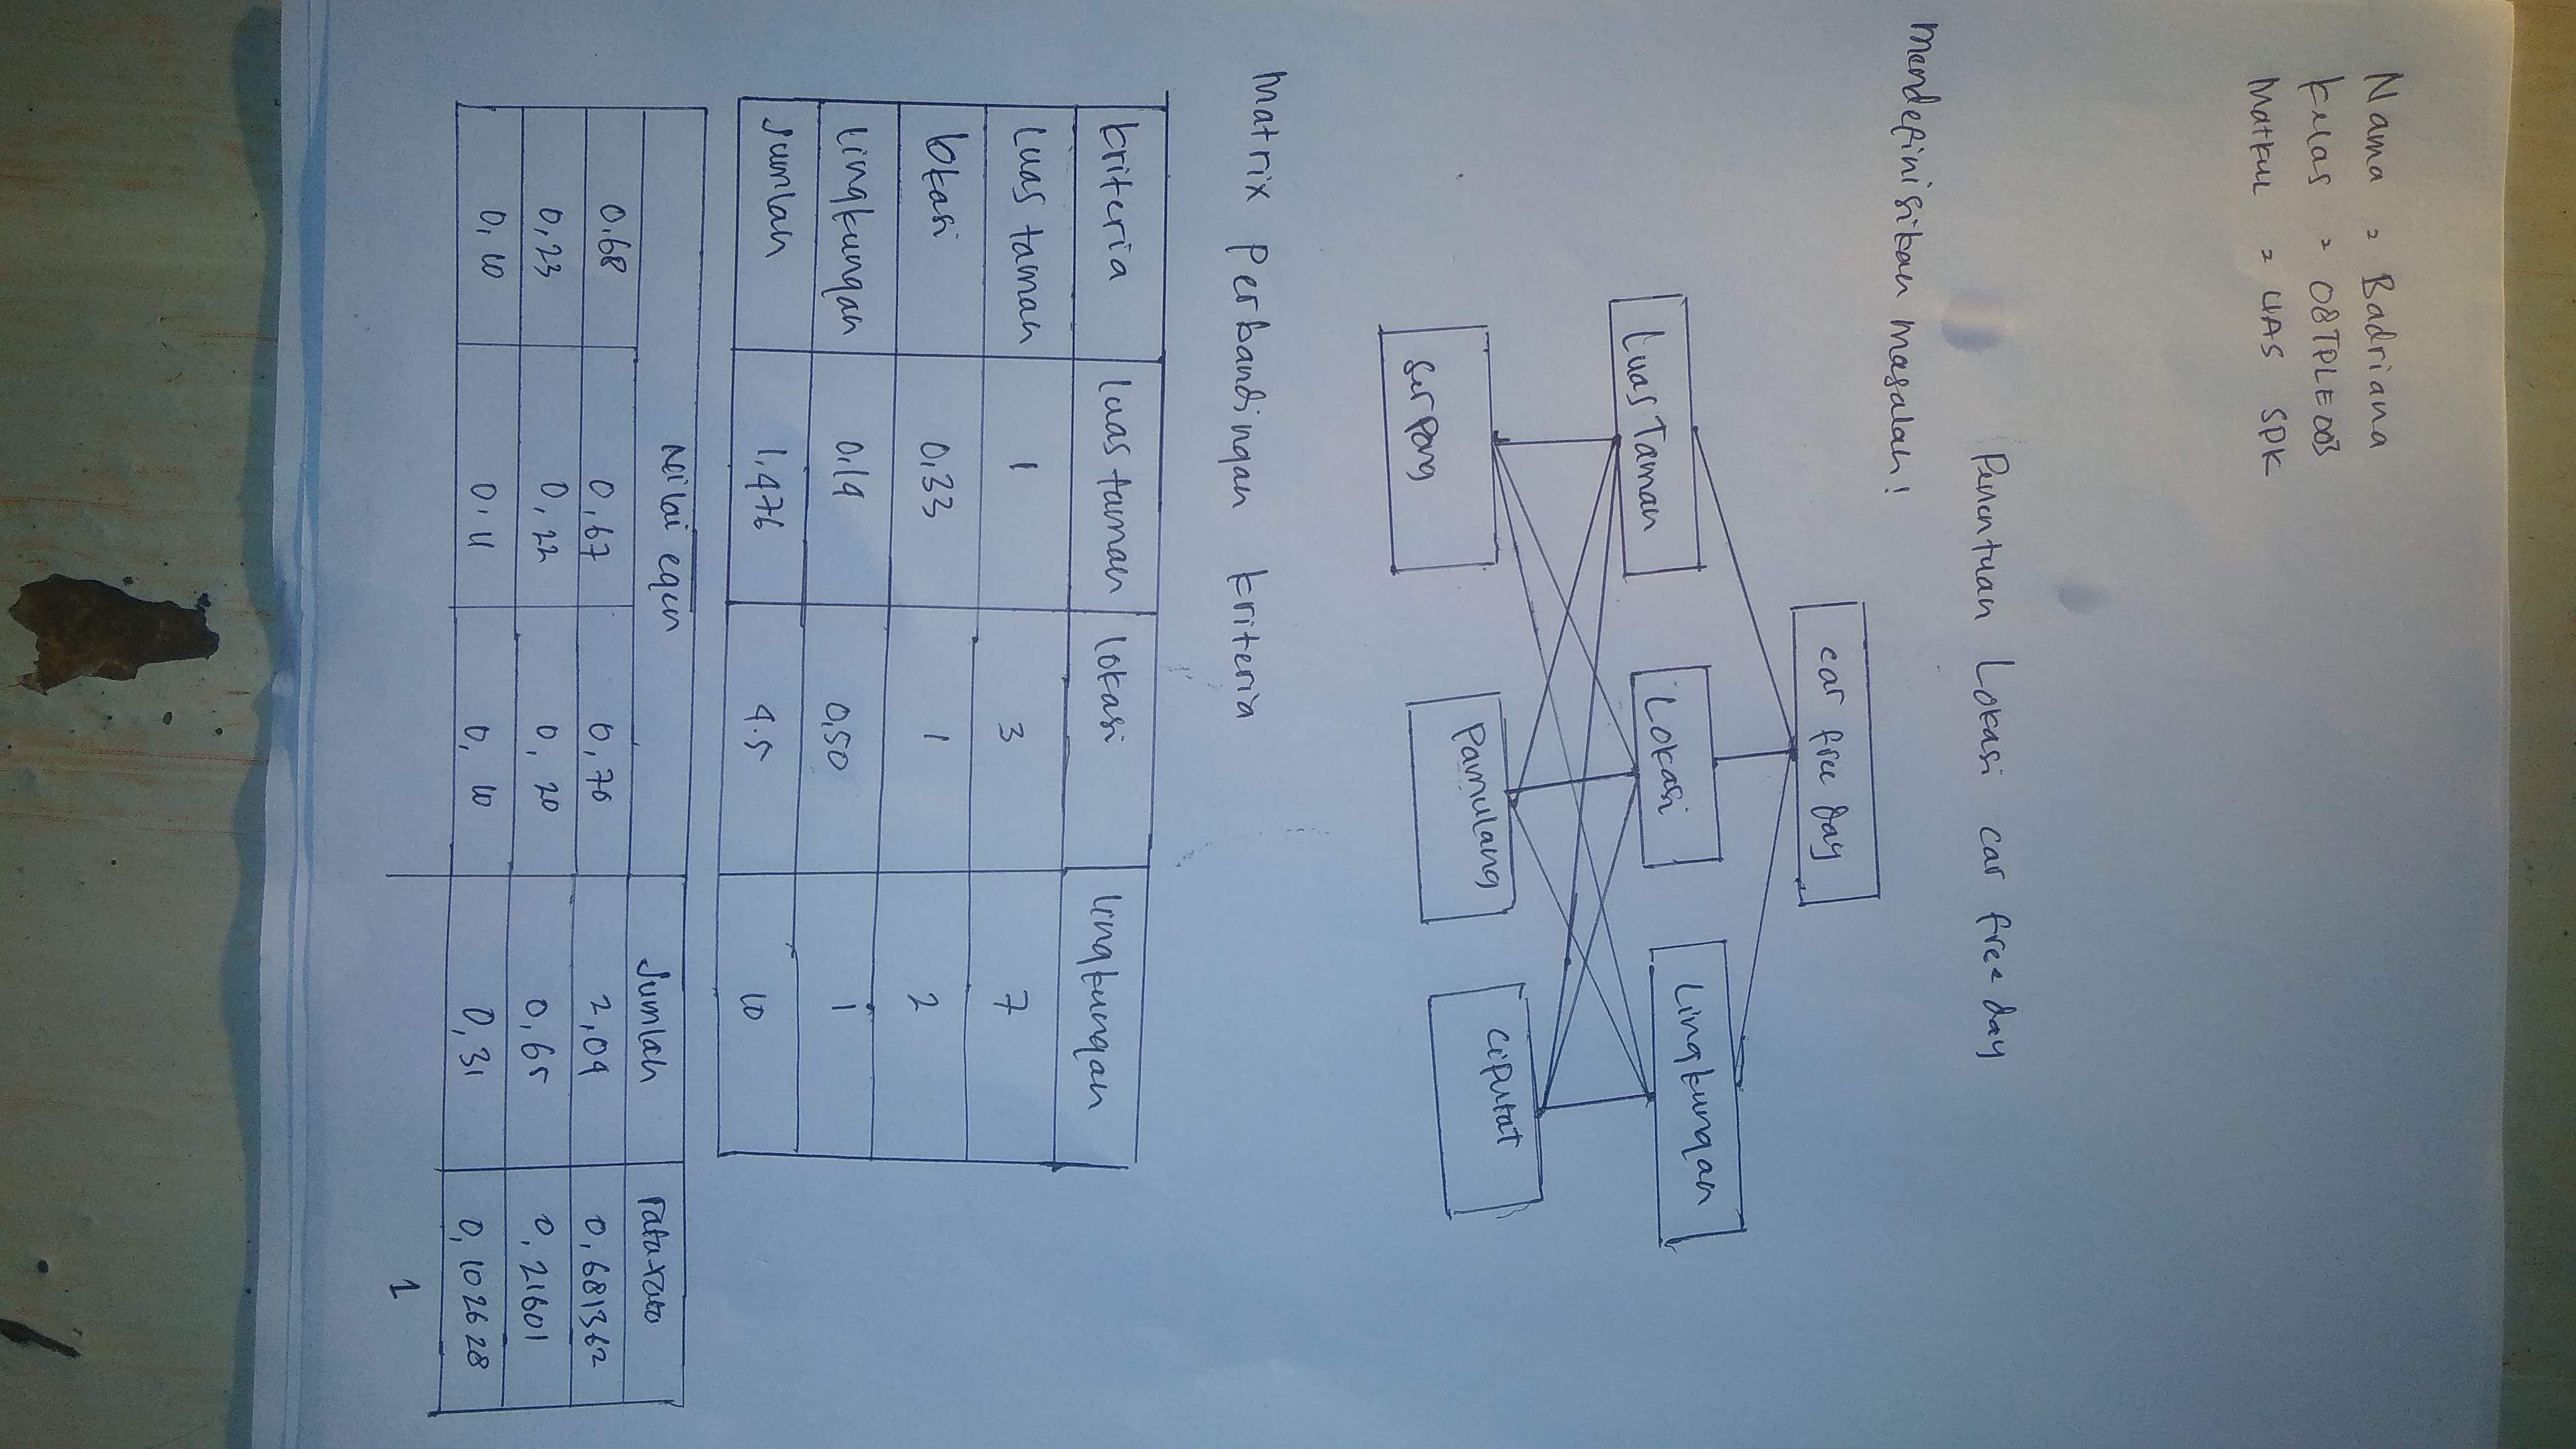 Nama = Badriana
Kelas = 08TPLE003
Matkul = UAS SPK
Penentuan Lokasi car free day
Mendefinisikan masalah!
car free day
Luas Taman
Lokasi
Lingkungan
Serpong
Pamulang
Ciputat
Matrix Perbandingan Kriteria
Kriteria Luas taman Lokasi Lingkungan
Luas taman 1 3 7
Lokasi 0,33 1 2
Lingkungan 0,14 0,50 1
Jumlah 1,476 4.5 10
Nilai egen Jumlah Rata-rata
0,68 0,67 0,70 2,04 0,681362
0,23 0,22 0,20 0,65 0,21601
0,10 0,11 0,10 0,31 0,102628
1